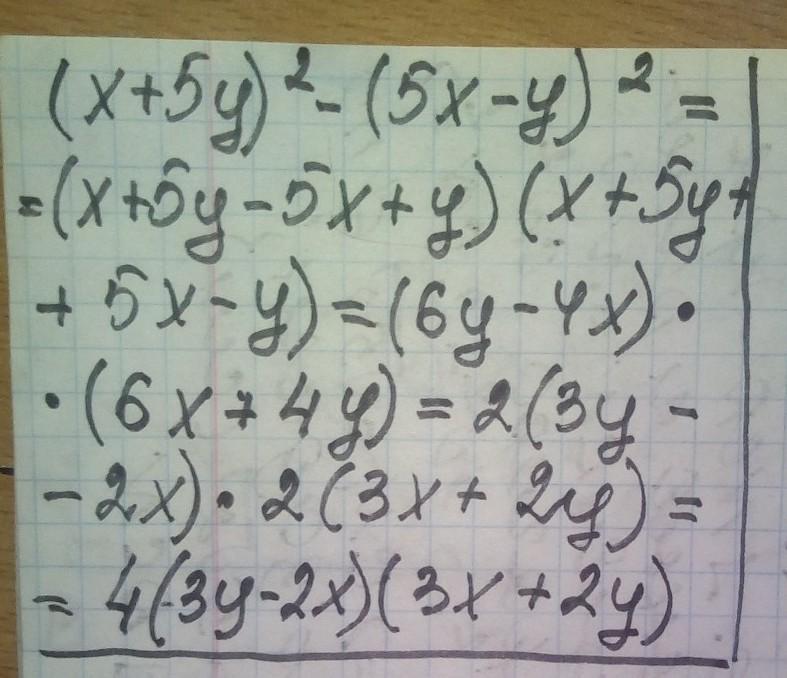 (x+5y)² - (5x-y)² =
= (x+5y-5x+y)(x+5y+
+ 5x-y) = (6y-4x) ·
· (6x+4y) = 2(3y -
- 2x) · 2(3x+2y) =
= 4(3y-2x)(3x+2y)